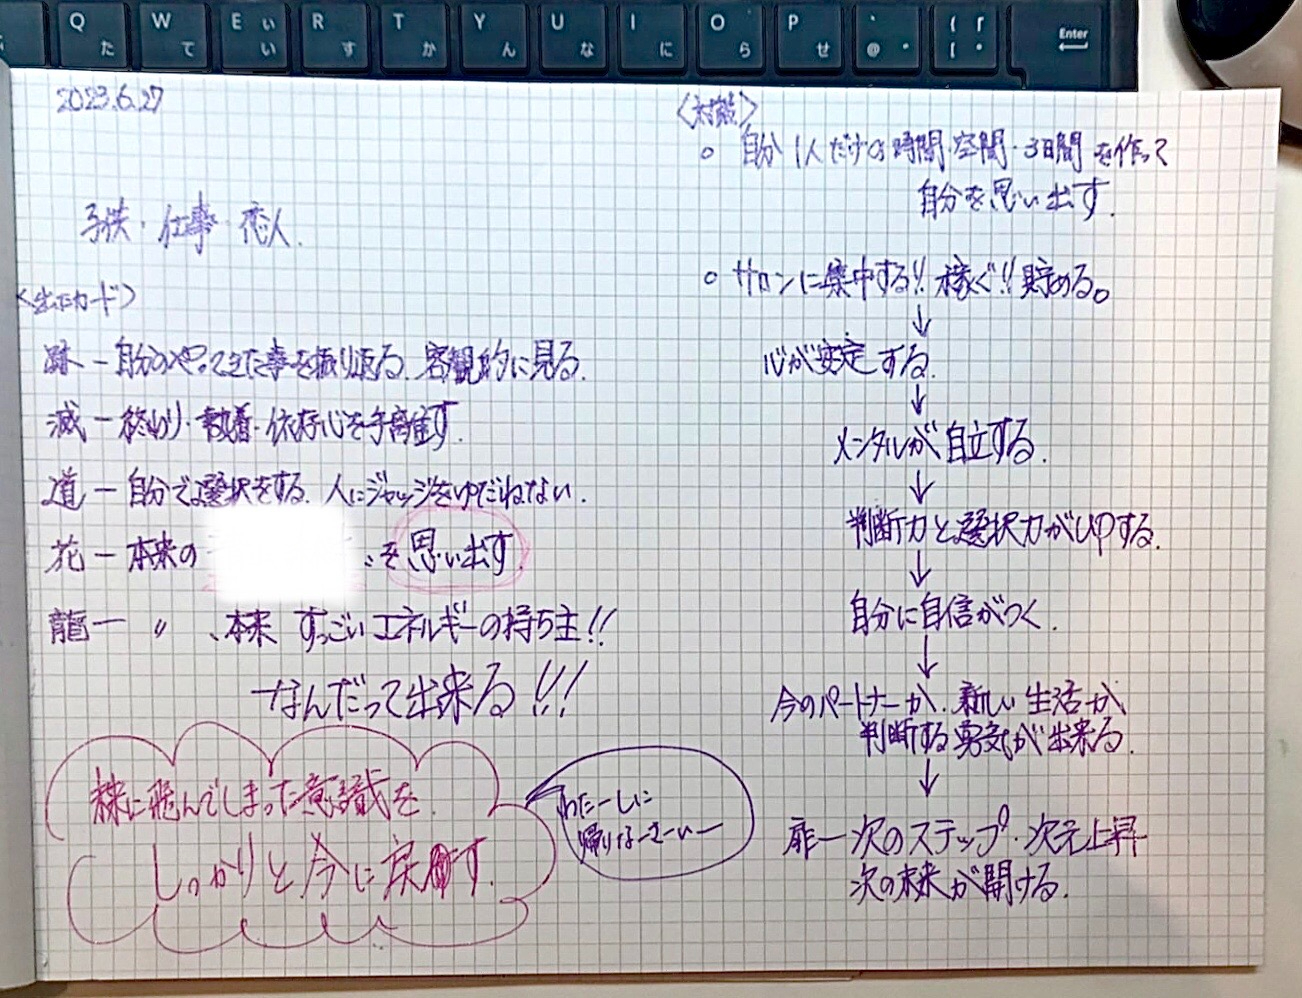 Q た
W て
E ぃ い
R す
T か
Y ん
U な
I に
O ら
P せ
` @ ゛
{ 「 [ ゜
Enter
2023.6.27
子供・仕事・恋人.
<出たカード>
跡ー自分のやってきた事を振り返る. 客観的に見る.
滅ー終わり・執着・依存心を手離す.
道ー自分で選択をする. 人にジャッジをゆだねない.
花ー本来の
を思い出す.
龍ー〃、本来 すっごいエネルギーの持ち主!!
なんだって出来る!!!
株に飛んでしまった意識を
しっかりと今に戻す.
わたーしに
帰りなーさーいー
<対策>
○ 自分1人だけの時間・空間・3日間を作って
自分を思い出す.
○ サロンに集中する!! 稼ぐ!! 貯める。
↓
心が安定する.
↓
メンタルが自立する.
↓
判断力と選択力がUPする.
↓
自分に自信がつく.
↓
今のパートナーか. 新しい生活か
判断する勇気が出来る.
↓
扉ー次のステップ・次元上昇
次の未来が開ける.